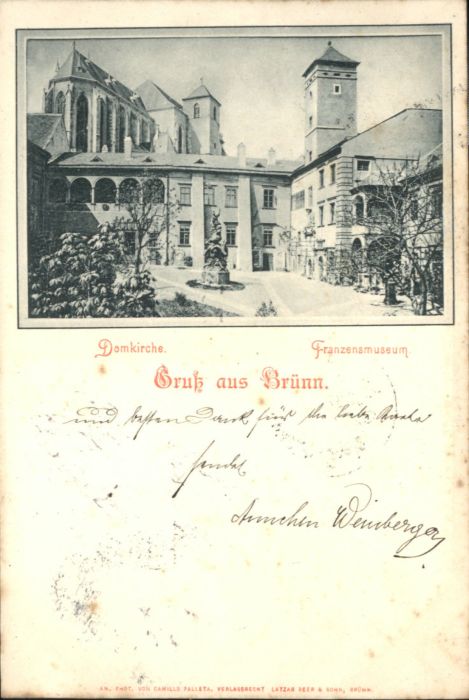 Domkirche. Franzensmuseum.
Gruß aus Brünn.
und besten Dank für Ihr liebe Karte
sendet
Annchen Weinberger
AN. PHOT. VON CAMILLO PALLETA, VERLAGSRECHT LATZAR BEER & SOHN, BRÜNN.